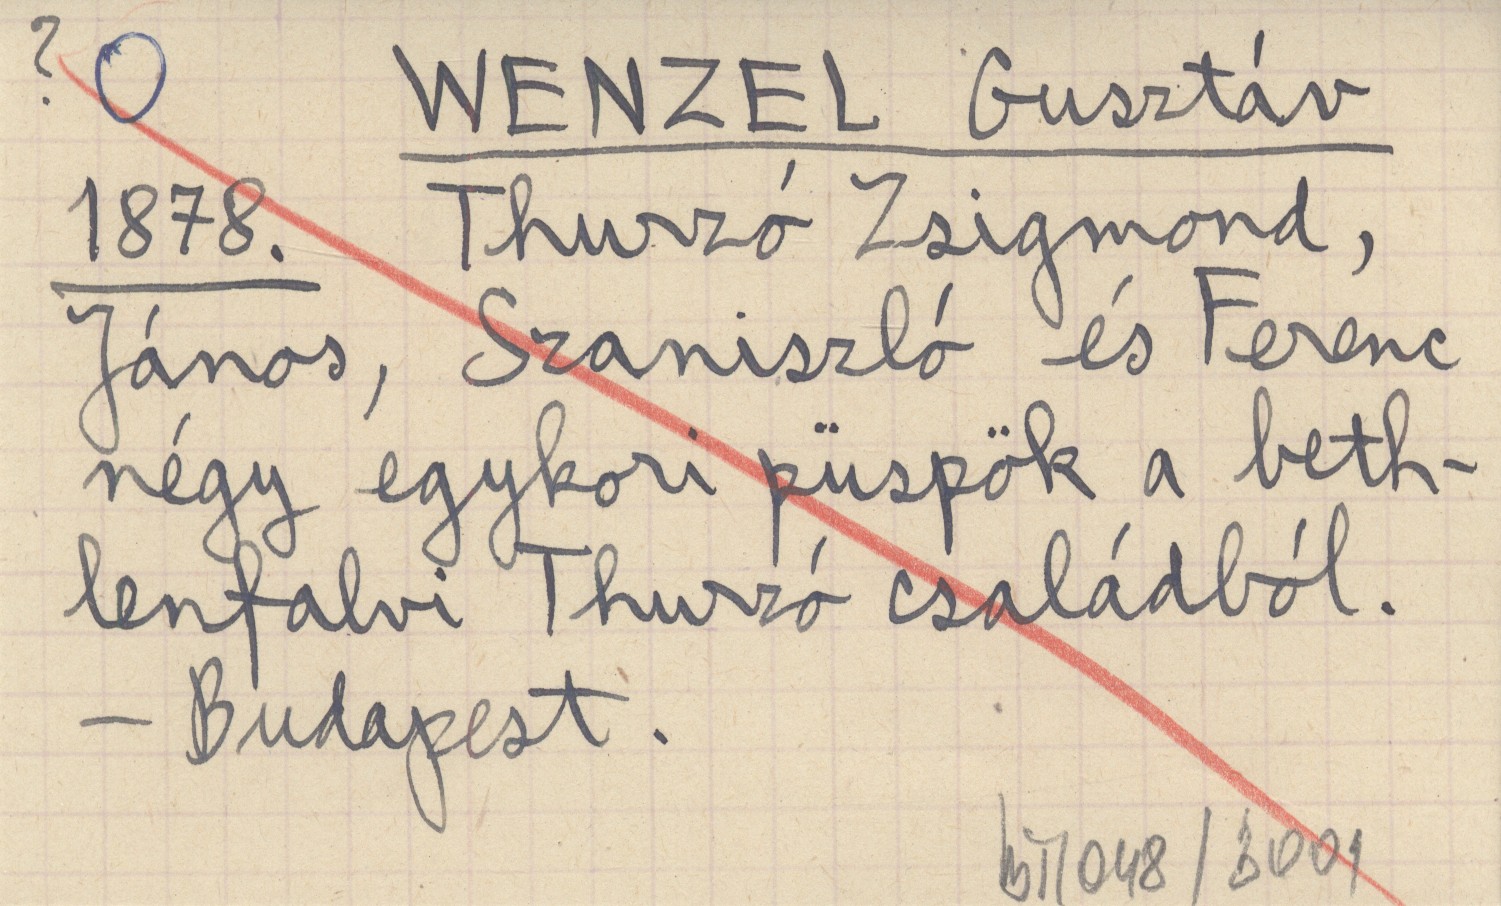 ? WENZEL Gusztáv
1878. Thurzó Zsigmond,
János, Szaniszló és Ferenc
négy egykori püspök a beth-
lenfalvi Thurzó családból.
– Budapest.
048 / 3001